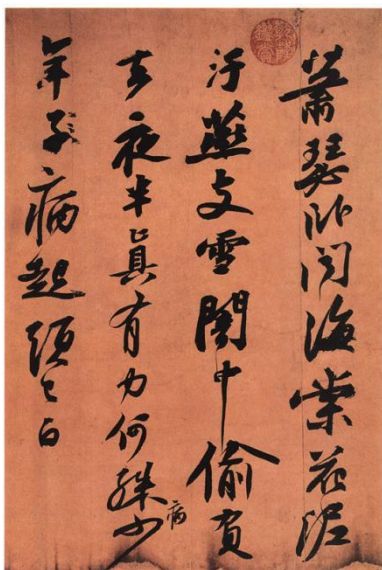 蕭瑟臥聞海棠花泥
汙燕支雪闇中偷負
去夜半眞有力何殊病少
年子病起頭已白